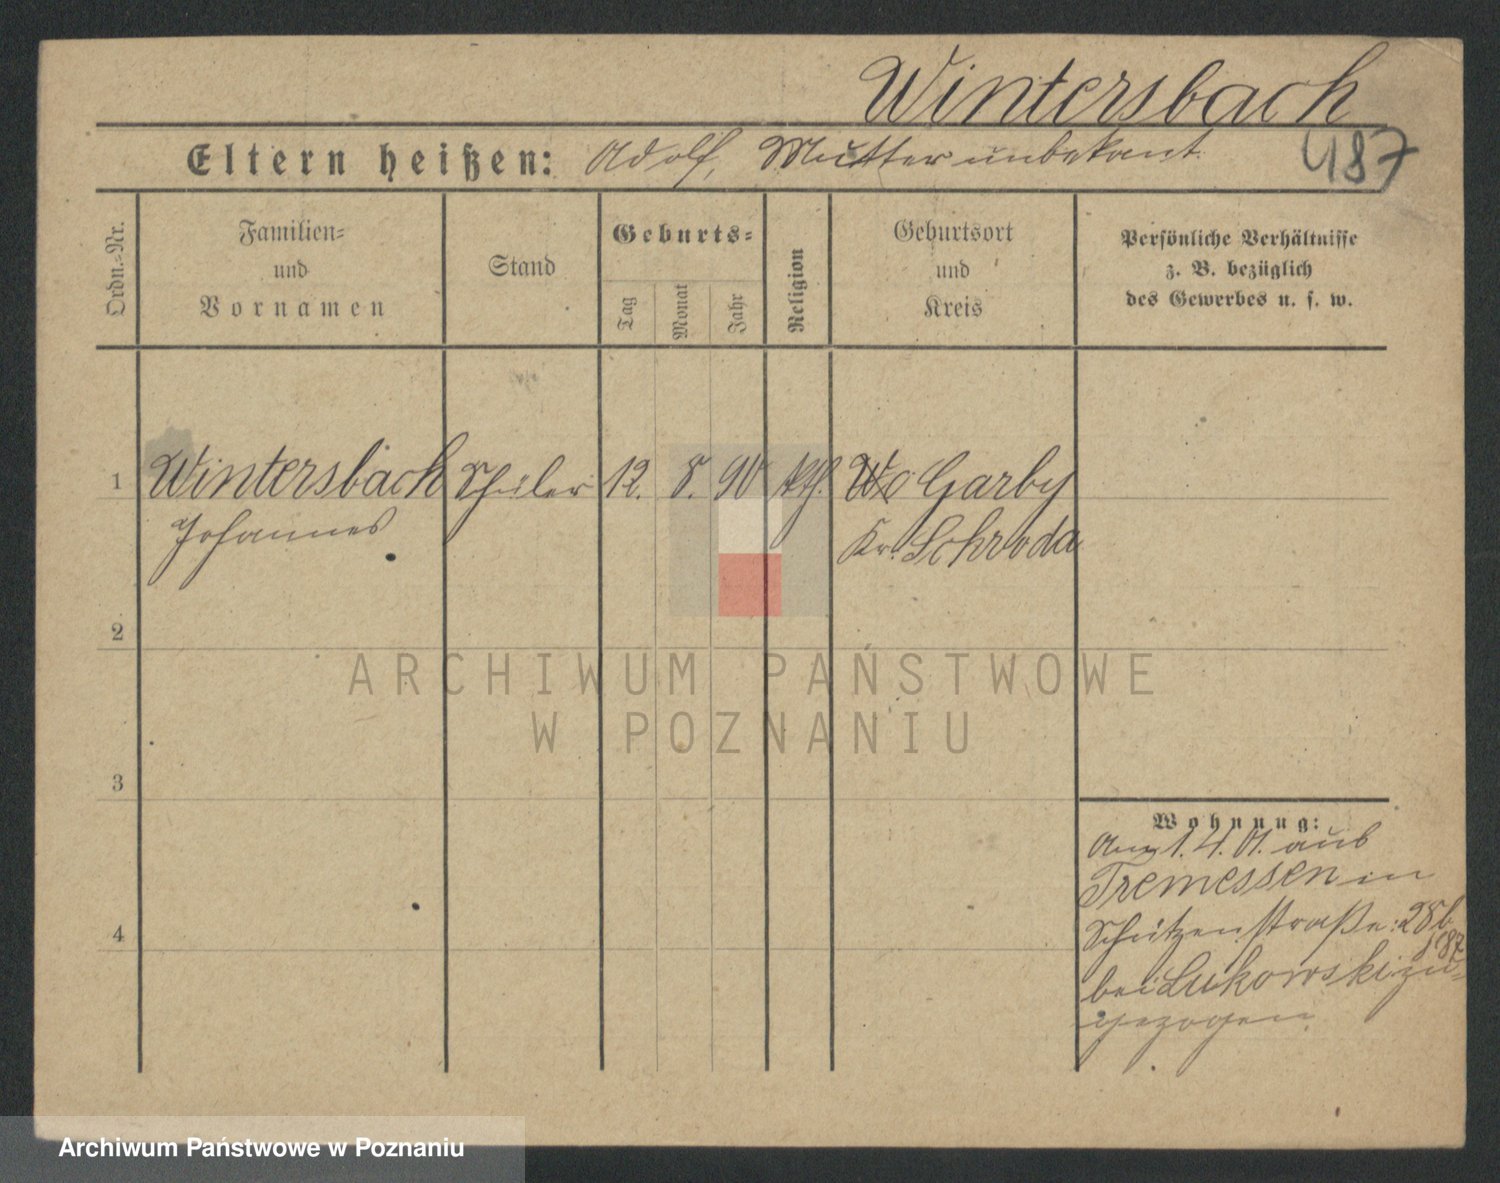 Wintersbach
Eltern heißen: Adolf, Mutter unbekant
487
Ordn.-Nr.
Familien-
und
Vornamen
Stand
Geburts-
Tag
Monat
Jahr
Religion
Geburtsort
und
Kreis
Persönliche Verhältnisse
z. B. bezüglich
des Gewerbes u. s. w.
1 Wintersbach Schüler 12. 8. 90 kth. Garby
Johannes Kr. Schroda
2
ARCHIWUM PAŃSTWOWE
W POZNANIU
3
Wohnung:
Am 1.4.01. aus
Tremessen in
Schützenstraße: 28b
bei Lukowski zu-
gezogen
4
Archiwum Państwowe w Poznaniu